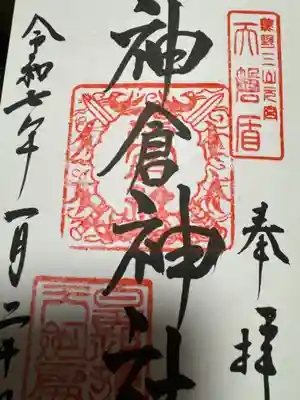 熊野三山元宮
天磐盾
奉拝
神倉神社
令和七年一月二十